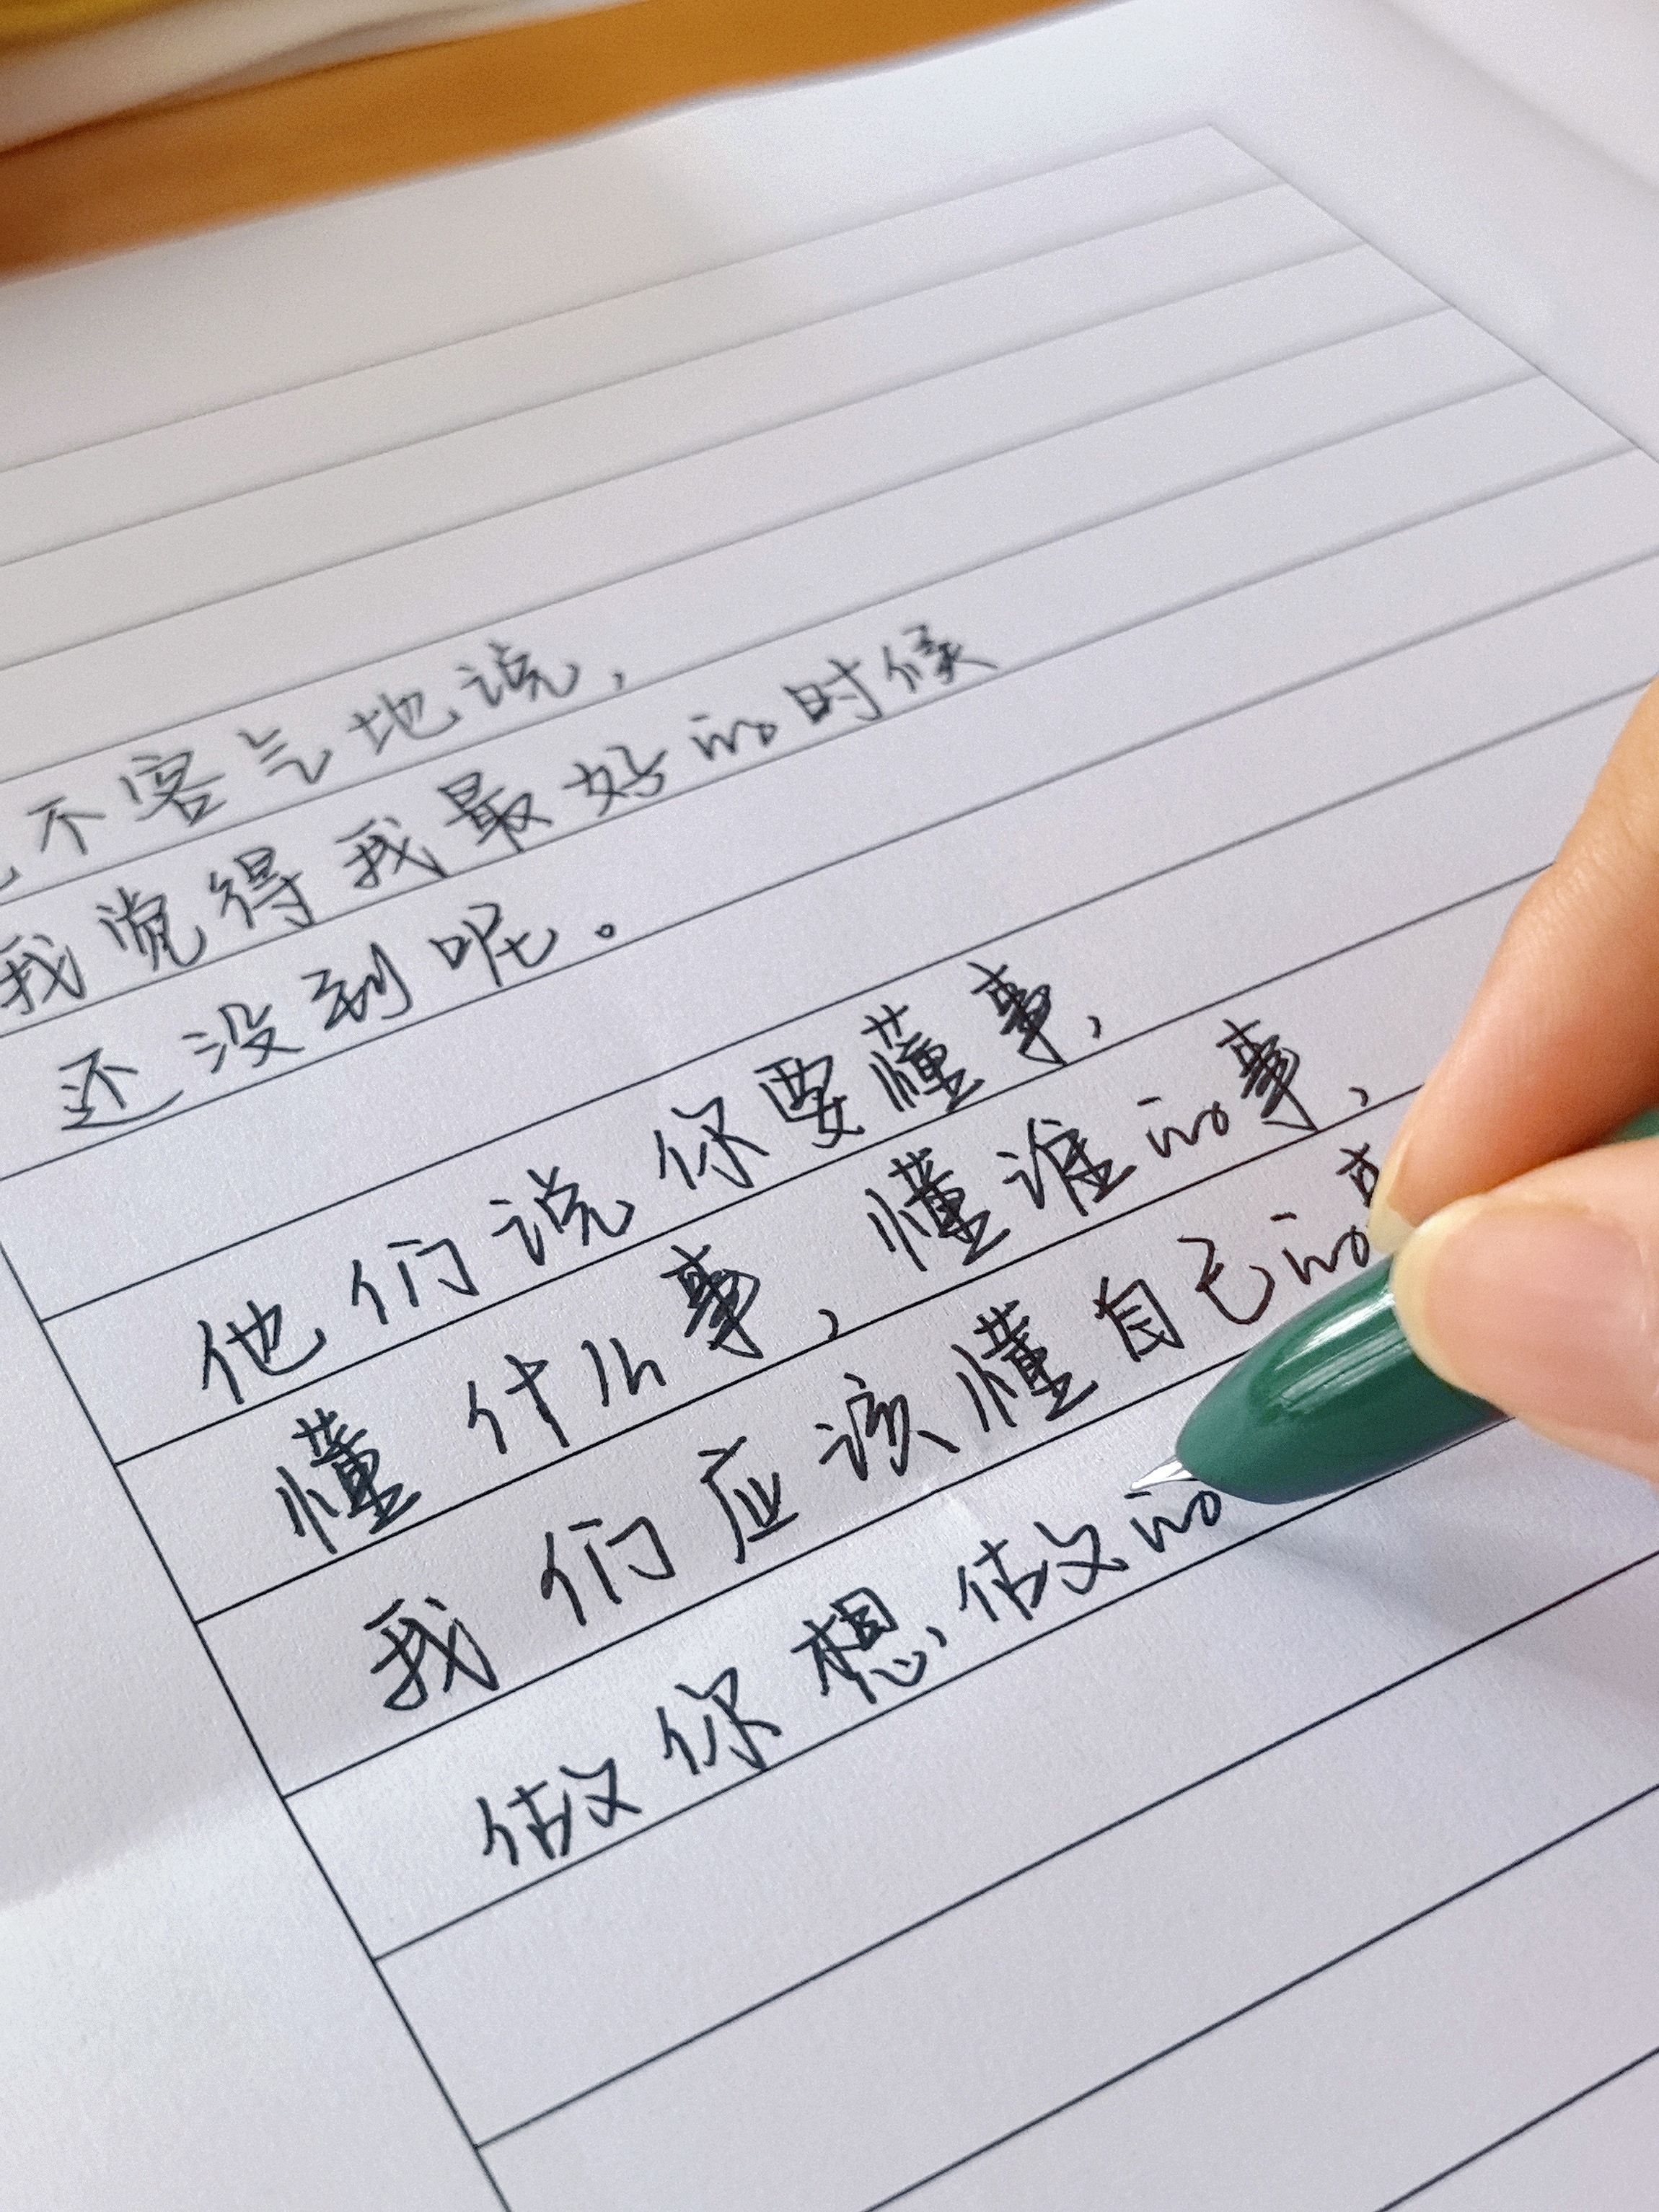 不客气地说，
我觉得我最好的时候
还没到呢。
他们说你要懂事，
懂什么事，懂谁的事，
我们应该懂自己的事
做你想做的